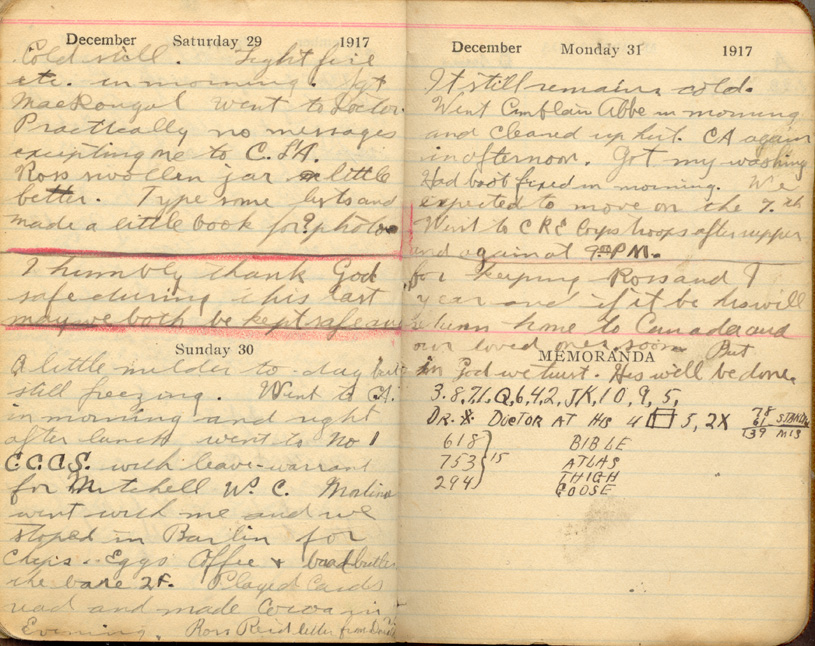 December Saturday 29 1917
Cold still. Light fire
etc. in morning. Sgt
MacDougal went to Doctor.
Practically no messages
excepting me to C.S.A.
Ross swollen jar a little
better. Type some lists and
made a little book for photos
I humbly thank God
safe during this last
may we both be kept safe and
Sunday 30
A little milder to-day but
still freezing. Went to CA.
in morning and right
after lunch went to No 1
C.C.S. with leave-warrant
for Mitchell W. C.
went with me and we
stoped in Barlin for
Chips. Eggs Coffee + bread butter
the bare 2F. Played Cards
read and made Cocoa in
Evening. Ross Reid letter from
December Monday 31 1917
It still remains cold.
Went Camblain Abbe in morning
and cleared up hut. CA again
in afternoon. Got my washing
Had boot fixed in morning. We
expected to move on the 7.th
Went to CRE Corps troops after supper
and again at 9 PM.
for keeping Ross and I
year and if it be his will
return home to Canada and
our loved ones soon. But
MEMORANDA
in God we trust. His will be done.
3.8,7,L,Q,6,4,2, J,K,1 0, 9, 5,
DR. DOCTOR AT HS 4 5, 2X 78 STAND
61
139 MIS
618 BIBLE
753 15 ATLAS
294 THIGH
GOOSE